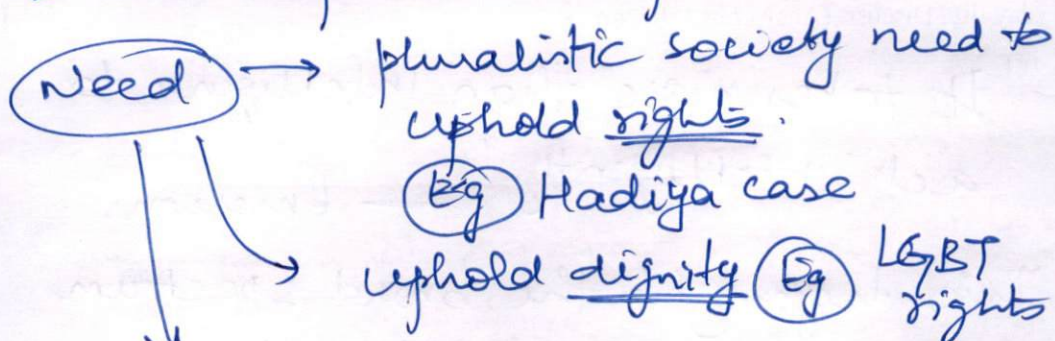 Need → pluralistic society need to
uphold rights.
Eg Hadiya case
→ uphold dignity Eg LGBT
rights